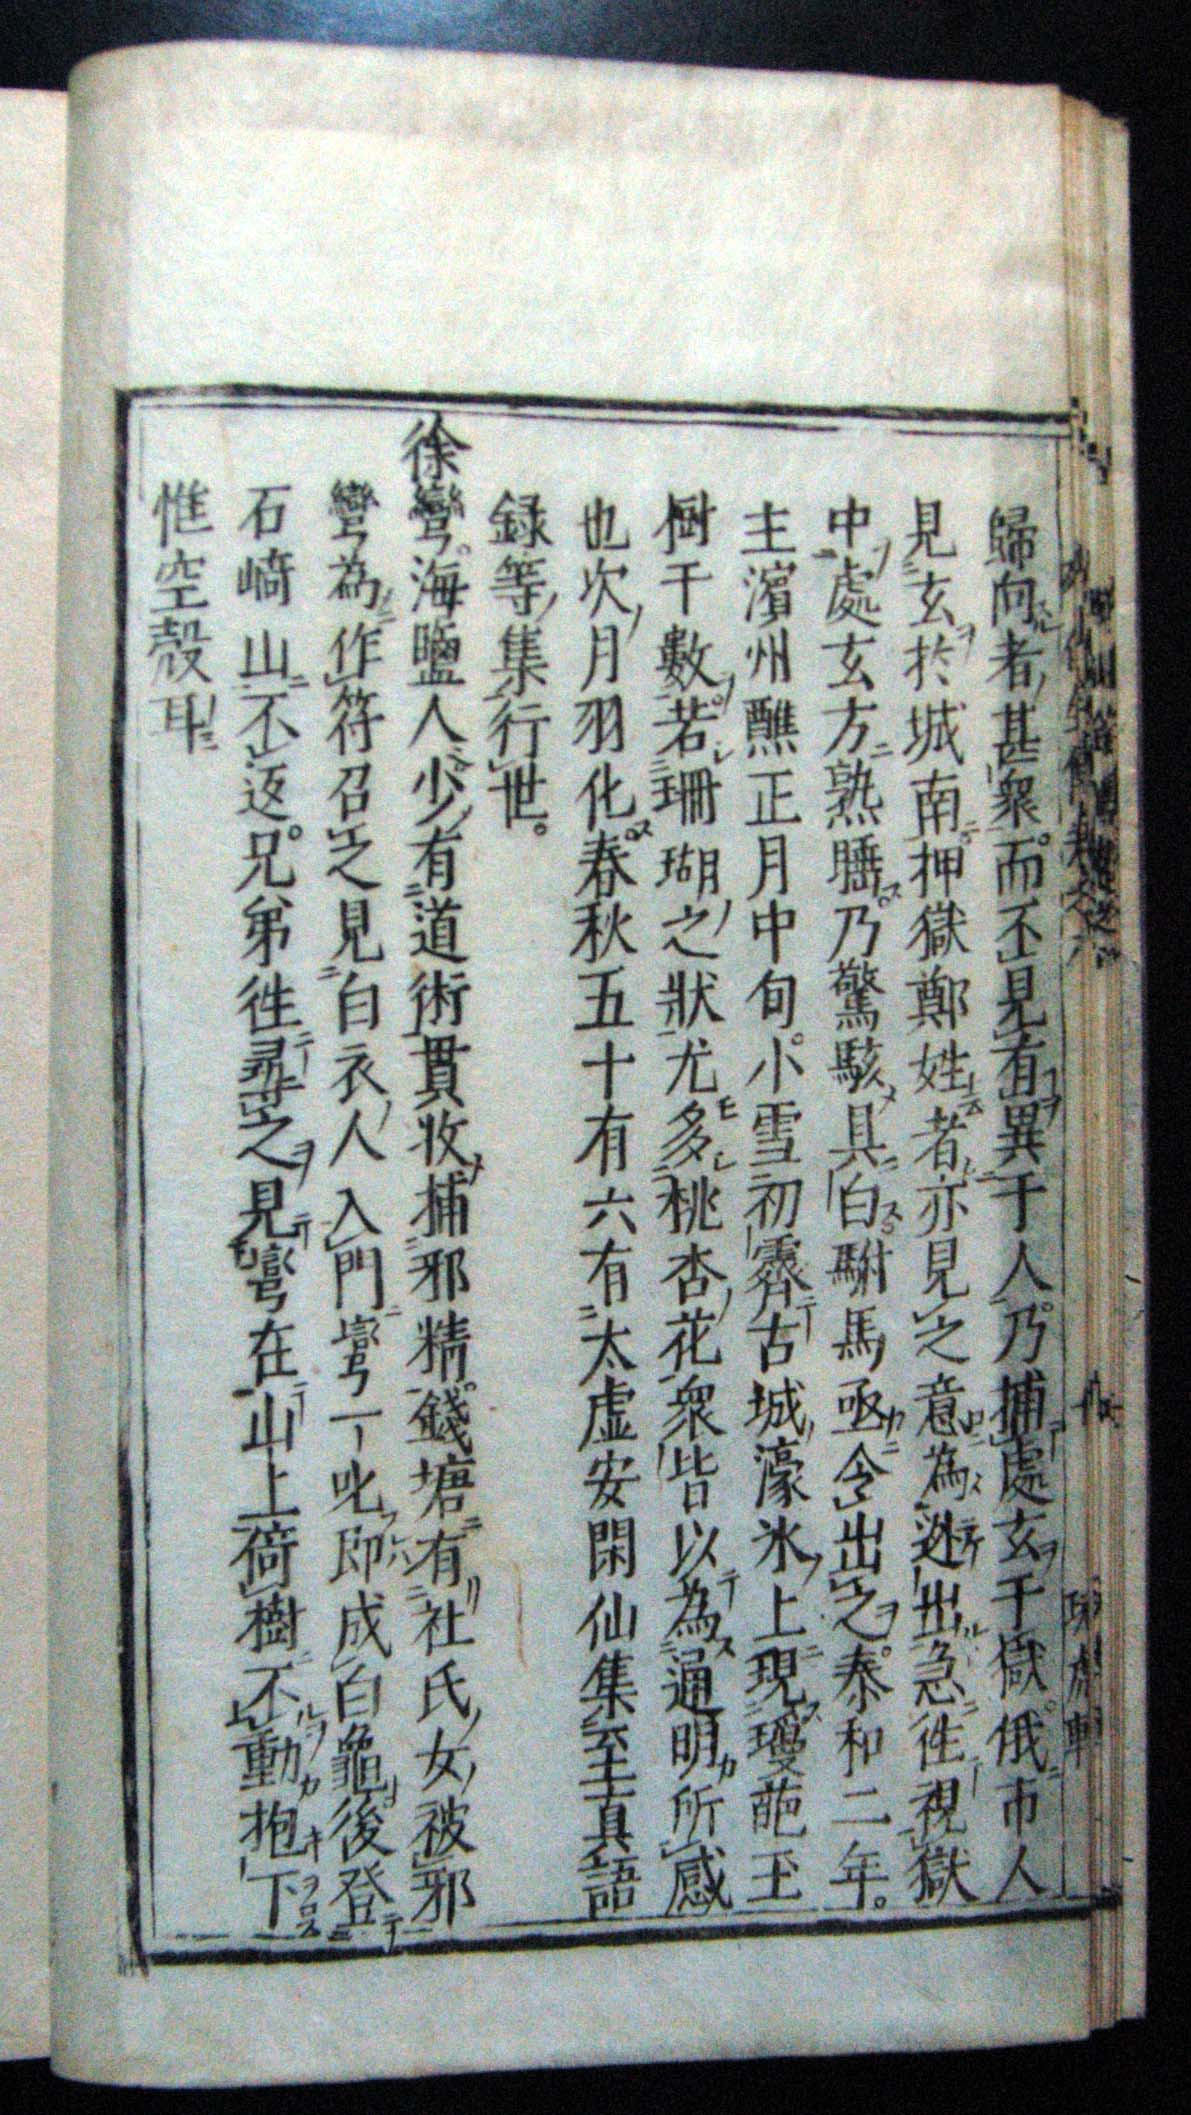 歸向者甚衆而不見有異于人乃捕處玄于獄俄市人
見玄於城南押獄鄭姓者亦見之意為迯出急徃視獄
中處玄方熟睡乃驚駭具白駙馬亟令出之泰和二年
主濱州醮正月中旬小雪初霽古城濠氷上現瓊葩玉
樹千數若珊瑚之狀尤多桃杏花衆皆以為通明所感
也次月羽化春秋五十有六有太虚安閑仙集至真語
録等集行世
徐彎海鹽人少有道術貫收捕邪精錢塘有社氏女被邪
彎為作符召之見白衣人入門彎一叱即成白龜後登
石﨑山不返兄弟徃尋之見彎在山上倚樹不動抱下
惟空殻耳